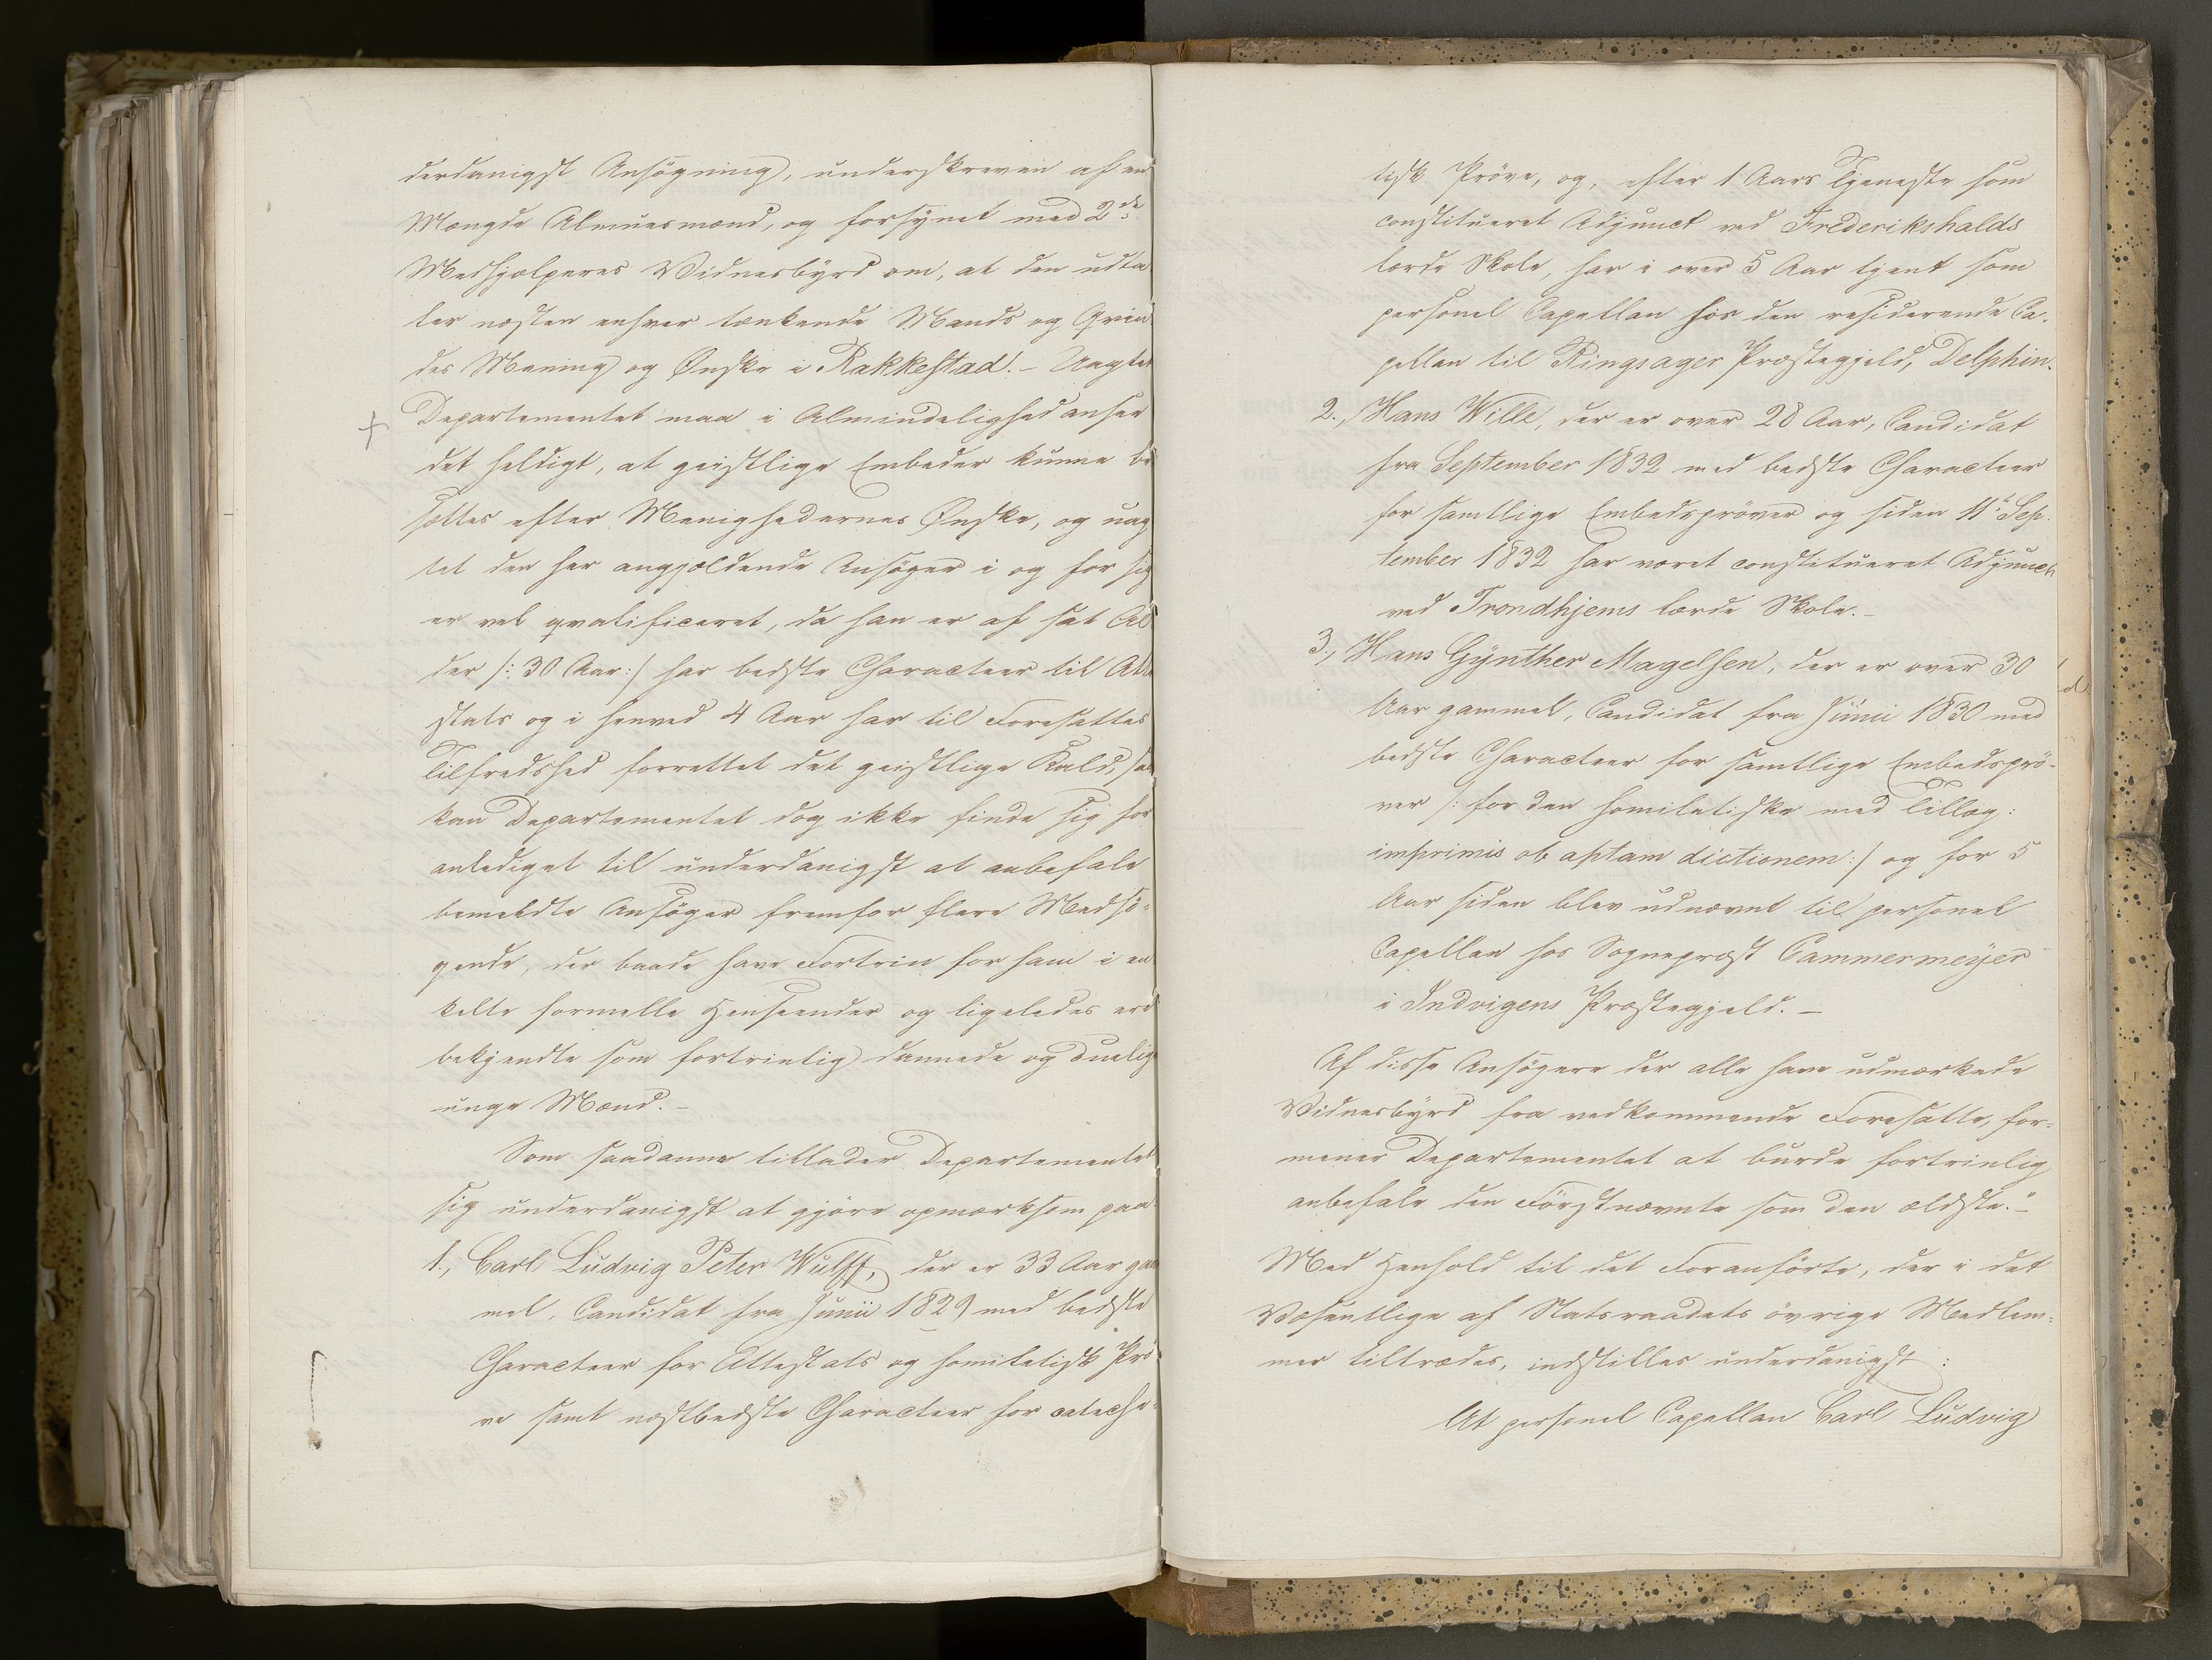 derdanigst Ansögning, underskreven af en
Mængde Almuesmænd, og forsynet med 2de
Medhjælperes Vidnesbyrd om, at den udta
ler næsten enhver tænkende Mands og Qvin
des Mening og Ønske i Rakkestad. - Uagtet
+ Departementet maa i Almindelighed ansee
det heldigt, at geistlige Embeder kunne be
sættes efter Menighedernes Ønske, og uag
tet den her angjældende Ansöger i og for sig
er vel qvalificeret, da han er af sat Al
der /: 30 Aar :/ har bedste Characteer til Atte
stats og i henved 4 Aar har til Foresattes
Tilfredshed forrettet det geistlige Kald, saa
kan Departementet dog ikke finde sig for
anlediget til underdanigst at anbefale
bemeldte Ansöger fremfor flere Medsö-
gende, der baade have Fortrin for ham i en
kelte formelle Henseender og ligeledes ere
bekjendte som fortrinlig dannede og duelige
unge Mænd. -
Som saadanne tillader Departementet
sig underdanigst at gjöre opmærksom paa
1., Carl Ludvig Peter Wulff, der er 33 Aar gam
mel, Candidat fra Junii 1829 med bedste
Characteer for Attestats og homiletisk Prö
ve samt næstbedste Characteer for cateche-
tisk Pröve, og, efter 1 Aars Tjeneste som
constitueret Adjunct ved Frederikshalds
lærde Skole, har i over 5 Aar tjent som
personel Capellan hos den residerende Ca-
pellan til Ringsager Præstegjeld, Delphin.
2., Hans Wille, der er over 28 Aar, Candidat
fra September 1832 med bedste Characteer
for samtlige Embedspröver og siden 11te Sep-
tember 1832 har været constitueret Adjunct
ved Trondhjems lærde Skole. -
3., Hans Gynther Magelsen, der er over 30
Aar gammel, Candidat fra Junii 1830 med
bedste Characteer for samtlige Embedsprö-
ver /: for den homiletiske med Tillæg:
imprimis ob aptam dictionem :/ og for 5
Aar siden blev udnævnt til personel
Capellan hos Sognepræst Cammermeyer
i Indvigens Præstegjeld. -
Af disse Ansögere der alle have udmærkede
Vidnesbyrd fra vedkommende Foresatte, for-
mener Departementet at burde fortrinlig
anbefale den Förstnævnte som den ældste." -
Med Henhold til det Foranförte, der i det
Væsentlige af Statsraadets övrige Medlem-
mer tiltrædes, indstilles underdanigst:
At personel Capellan Carl Ludvig